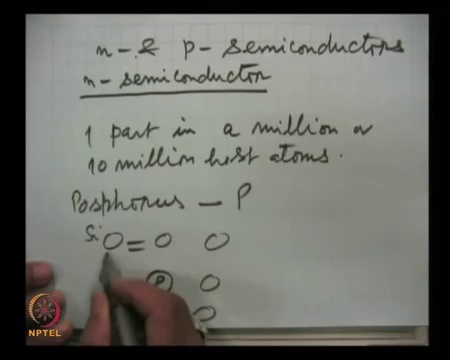 n- & p- semiconductors
n- semiconductor
1 part in a million or
10 million host atoms.
Posphorus — P
Si O = O O
P O
O
NPTEL